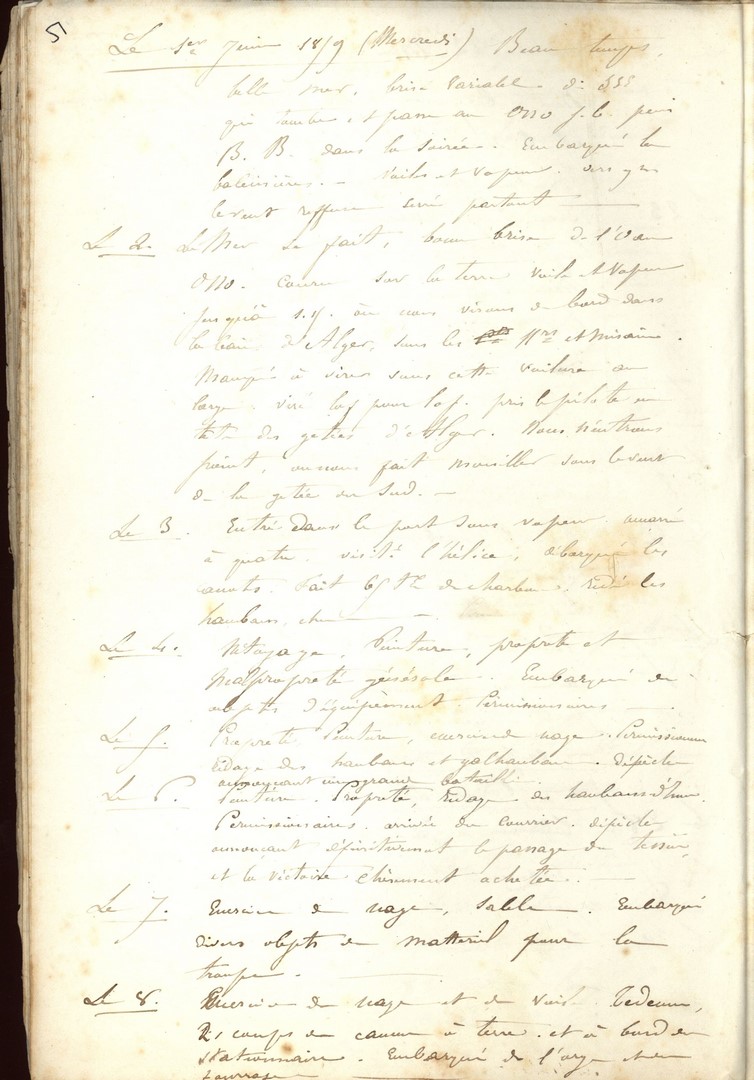 51
Le 1er Juin 1859 (Mercredi) Beau temps,
belle mer, brise variable du SSE
qui tombe et passe au ONO j.b. puis
B. B. dans la soirée. Embarqué la
baleinière. Voiles et vapeur. vers
le vent serré partout
Le 2. La Mer se fait, bonne brise de l'O au
ONO. Couru sur la terre voile et vapeur
jusqu'à où nous virons de bord dans
la baie d'Alger, sous les et Misaine.
Manqué à virer sous cette voilure au
large. viré lof pour lof. pris le pilote en
tête des getées d'Alger. Nous n'entrons
point, on nous fait mouiller sous le vent
de la getée du Sud.
Le 3. Entré dans le port sous vapeur. amarré
à quatre. visité l'hélice, débarqué les
canots. Fait 65 Tx de charbon. Ridé les
haubans,
Le 4. Peinture, propreté et
malpropreté générale. Embarqué des
objets d'équipement. Permissionnaires
Le 5. Propreté, Peinture, exercice de nage. Permissionnaires
ridage des haubans et galhaubans. dépêche
annonçant une grande bataille.
Le 6. Peinture. Propreté, Ridage des haubans d'hune.
Permissionnaires. arrivée du courrier. dépêche
annonçant définitivement le passage du Tessin,
et la victoire chèrement achetée.
Le 7. Exercice de nage, sable. Embarqué
divers objets de matteriel pour la
troupe.
Le 8. Exercice de nage et de voile. Tedeum,
coups de canon à terre et à bord du
stationnaire. Embarqué de l'orge et du
fourrage